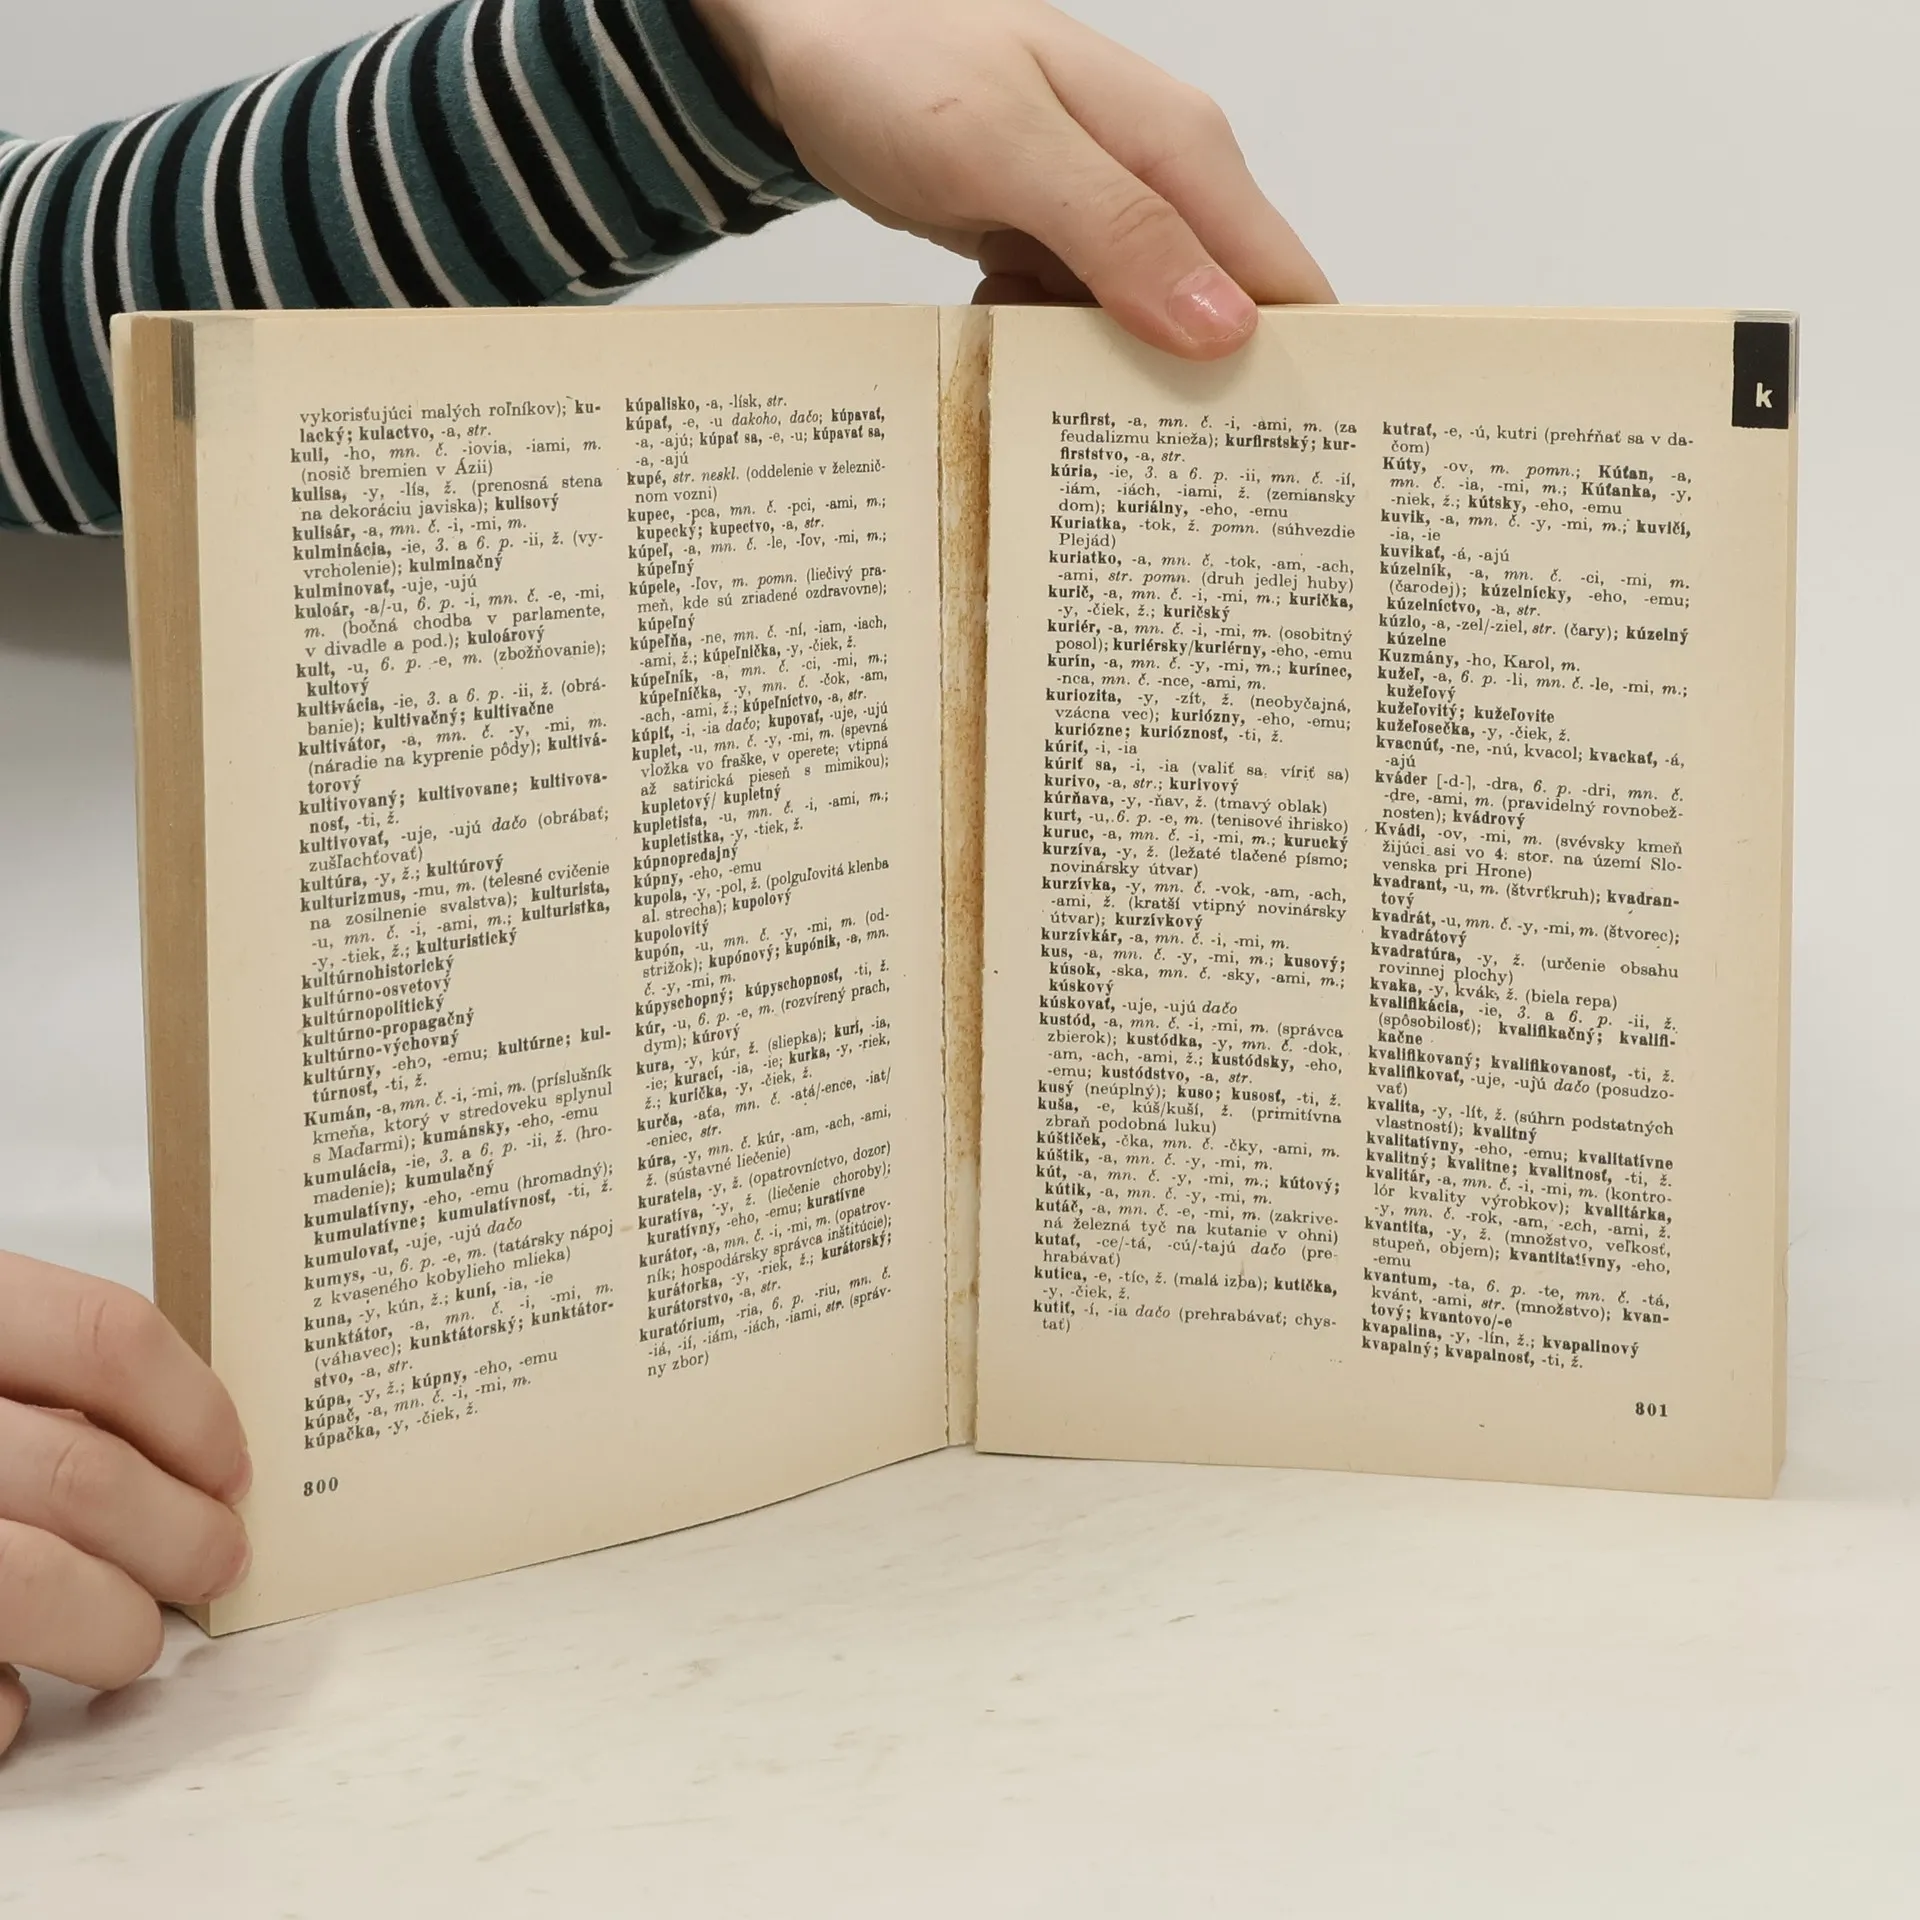 vykorisťujúci malých roľníkov); ku-
lacký; kulactvo, -a, str.
kuli, -ho, mn. č. -iovia, -iami, m.
(nosič bremien v Ázii)
kulisa, -y, -lís, ž. (prenosná stena
na dekoráciu javiska); kulisový
kulisár, -a, mn. č. -i, -mi, m.
kulminácia, -ie, 3. a 6. p. -ii, ž. (vy-
vrcholenie); kulminačný
kulminovať, -uje, -ujú
kuloár, -a/-u, 6. p. -i, mn. č. -e, -mi,
m. (bočná chodba v parlamente,
v divadle a pod.); kuloárový
kult, -u, 6. p. -e, m. (zbožňovanie);
kultový
kultivácia, -ie, 3. a 6. p. -ii, ž. (obrá-
banie); kultivačný; kultivačne
kultivátor, -a, mn. č. -y, -mi, m.
(náradie na kyprenie pôdy); kultivá-
torový
kultivovaný; kultivovane; kultivova-
nosť, -ti, ž.
kultivovať, -uje, -ujú dačo (obrábať;
zušľachťovať)
kultúra, -y, ž.; kultúrový
kulturizmus, -mu, m. (telesné cvičenie
na zosilnenie svalstva); kulturista,
-u, mn. č. -i, -ami, m.; kulturistka,
-y, -tiek, ž.; kulturistický
kultúrnohistorický
kultúrno-osvetový
kultúrnopolitický
kultúrno-propagačný
kultúrno-výchovný
kultúrny, -eho, -emu; kultúrne; kul-
túrnosť, -ti, ž.
Kumán, -a, mn. č. -i, -mi, m. (príslušník
kmeňa, ktorý v stredoveku splynul
s Maďarmi); kumánsky, -eho, -emu
kumulácia, -ie, 3. a 6. p. -ii, ž. (hro-
madenie); kumulačný
kumulatívny, -eho, -emu (hromadný);
kumulatívne; kumulatívnosť, -ti, ž.
kumulovať, -uje, -ujú dačo
kumys, -u, 6. p. -e, m. (tatársky nápoj
z kvaseného kobylieho mlieka)
kuna, -y, kún, ž.; kuní, -ia, -ie
kunktátor, -a, mn. č. -i, -mi, m.
(váhavec); kunktátorský; kunktátor-
stvo, -a, str.
kúpa, -y, ž.; kúpny, -eho, -emu
kúpač, -a, mn. č. -i, -mi, m.
kúpačka, -y, -čiek, ž.
800
kúpalisko, -a, -lísk, str.
kúpať, -e, -u dakoho, dačo; kúpavať,
-a, -ajú; kúpať sa, -e, -u; kúpavať sa,
-a, -ajú
kupé, str. neskl. (oddelenie v železnič-
nom vozni)
kupec, -pca, mn. č. -pci, -ami, m.;
kupecký; kupectvo, -a, str.
kúpeľ, -a, mn. č. -le, -ľov, -mi, m.;
kúpeľný
kúpele, -ľov, m. pomn. (liečivý pra-
meň, kde sú zriadené ozdravovne);
kúpeľný
kúpeľňa, -ne, mn. č. -ní, -iam, -iach,
-ami, ž.; kúpeľnička, -y, -čiek, ž.
kúpeľník, -a, mn. č. -ci, -mi, m.;
kúpeľníčka, -y, mn. č. -čok, -am,
-ach, -ami, ž.; kúpeľníctvo, -a, str.
kúpiť, -i, -ia dačo; kupovať, -uje, -ujú
kuplet, -u, mn. č. -y, -mi, m. (spevná
vložka vo fraške, v operete; vtipná
až satirická pieseň s mimikou);
kupletový/ kupletný
kupletista, -u, mn. č. -i, -ami, m.;
kupletistka, -y, -tiek, ž.
kúpnopredajný
kúpny, -eho, -emu
kupola, -y, -pol, ž. (polguľovitá klenba
al. strecha); kupolový
kupolovitý
kupón, -u, mn. č. -y, -mi, m. (od-
strižok); kupónový; kupónik, -a, mn.
č. -y, -mi, m.
kúpyschopný; kúpyschopnosť, -ti, ž.
kúr, -u, 6. p. -e, m. (rozvírený prach,
dym); kúrový
kura, -y, kúr, ž. (sliepka); kurí, -ia,
-ie; kurací, -ia, -ie; kurka, -y, -riek,
ž.; kurička, -y, -čiek, ž.
kurča, -aťa, mn. č. -atá/-ence, -iat/
-eniec, str.
kúra, -y, mn. č. kúr, -am, -ach, -ami,
ž. (sústavné liečenie)
kuratela, -y, ž. (opatrovníctvo, dozor)
kuratíva, -y, ž. (liečenie choroby);
kuratívny, -eho, -emu; kuratívne
kurátor, -a, mn. č. -i, -mi, m. (opatrov-
ník; hospodársky správca inštitúcie);
kurátorka, -y, -riek, ž.; kurátorský;
kurátorstvo, -a, str.
kuratórium, -ria, 6. p. -riu, mn. č.
-iá, -ií, -iám, -iách, -iami, str. (správ-
ny zbor)
k
kurfirst, -a, mn. č. -i, -ami, m. (za
feudalizmu knieža); kurfirstský; kur-
firststvo, -a, str.
kúria, -ie, 3. a 6. p. -ii, mn. č. -ií,
-iám, -iách, -iami, ž. (zemiansky
dom); kuriálny, -eho, -emu
Kuriatka, -tok, ž. pomn. (súhvezdie
Plejád)
kuriatko, -a, mn. č. -tok, -am, -ach,
-ami, str. pomn. (druh jedlej huby)
kurič, -a, mn. č. -i, -mi, m.; kurička,
-y, -čiek, ž.; kuričský
kuriér, -a, mn. č. -i, -mi, m. (osobitný
posol); kuriérsky/kuriérny, -eho, -emu
kurín, -a, mn. č. -y, -mi, m.; kurínec,
-nca, mn. č. -nce, -ami, m.
kuriozita, -y, -zít, ž. (neobyčajná,
vzácna vec); kuriózny, -eho, -emu;
kuriózne; kurióznosť, -ti, ž.
kúriť, -i, -ia
kúriť sa, -i, -ia (valiť sa, víriť sa)
kurivo, -a, str.; kurivový
kúrňava, -y, -ňav, ž. (tmavý oblak)
kurt, -u, 6. p. -e, m. (tenisové ihrisko)
kuruc, -a, mn. č. -i, -mi, m.; kurucký
kurzíva, -y, ž. (ležaté tlačené písmo;
novinársky útvar)
kurzívka, -y, mn. č. -vok, -am, -ach,
-ami, ž. (kratší vtipný novinársky
útvar); kurzívkový
kurzívkár, -a, mn. č. -i, -mi, m.
kus, -a, mn. č. -y, -mi, m.; kusový;
kúsok, -ska, mn. č. -sky, -ami, m.;
kúskový
kúskovať, -uje, -ujú dačo
kustód, -a, mn. č. -i, -mi, m. (správca
zbierok); kustódka, -y, mn. č. -dok,
-am, -ach, -ami, ž.; kustódsky, -eho,
-emu; kustódstvo, -a, str.
kusý (neúplný); kuso; kusosť, -ti, ž.
kuša, -e, kúš/kuší, ž. (primitívna
zbraň podobná luku)
kúštiček, -čka, mn. č. -čky, -ami, m.
kúštik, -a, mn. č. -y, -mi, m.
kút, -a, mn. č. -y, -mi, m.; kútový;
kútik, -a, mn. č. -y, -mi, m.
kutáč, -a, mn. č. -e, -mi, m. (zakrive-
ná železná tyč na kutanie v ohni)
kutať, -ce/-tá, -cú/-tajú dačo (pre-
hrabávať)
kutica, -e, -tíc, ž. (malá izba); kutička,
-y, -čiek, ž.
kutiť, -í, -ia dačo (prehrabávať; chys-
tať)
kutrať, -e, -ú, kutri (prehŕňať sa v da-
čom)
Kúty, -ov, m. pomn.; Kúťan, -a,
mn. č. -ia, -mi, m.; Kúťanka, -y,
-niek, ž.; kútsky, -eho, -emu
kuvik, -a, mn. č. -y, -mi, m.; kuvičí,
-ia, -ie
kuvikať, -á, -ajú
kúzelník, -a, mn. č. -ci, -mi, m.
(čarodej); kúzelnícky, -eho, -emu;
kúzelníctvo, -a, str.
kúzlo, -a, -zel/-ziel, str. (čary); kúzelný
kúzelne
Kuzmány, -ho, Karol, m.
kužeľ, -a, 6. p. -li, mn. č. -le, -mi, m.;
kužeľový
kužeľovitý; kužeľovite
kužeľosečka, -y, -čiek, ž.
kvacnúť, -ne, -nú, kvacol; kvackať, -á,
-ajú
kváder [-d-], -dra, 6. p. -dri, mn. č.
-dre, -ami, m. (pravidelný rovnobež-
nosten); kvádrový
Kvádi, -ov, -mi, m. (svévsky kmeň
žijúci asi vo 4. stor. na území Slo-
venska pri Hrone)
kvadrant, -u, m. (štvrťkruh); kvadran-
tový
kvadrát, -u, mn. č. -y, -mi, m. (štvorec);
kvadrátový
kvadratúra, -y, ž. (určenie obsahu
rovinnej plochy)
kvaka, -y, kvák, ž. (biela repa)
kvalifikácia, -ie, 3. a 6. p. -ii, ž.
(spôsobilosť); kvalifikačný; kvalifi-
kačne
kvalifikovaný; kvalifikovanosť, -ti, ž.
kvalifikovať, -uje, -ujú dačo (posudzo-
vať)
kvalita, -y, -lít, ž. (súhrn podstatných
vlastností); kvalitný
kvalitatívny, -eho, -emu; kvalitatívne
kvalitný; kvalitne; kvalitnosť, -ti, ž.
kvalitár, -a, mn. č. -i, -mi, m. (kontro-
lór kvality výrobkov); kvalitárka,
-y, mn. č. -rok, -am, -ach, -ami, ž.
kvantita, -y, ž. (množstvo, veľkosť,
stupeň, objem); kvantitatívny, -eho,
-emu
kvantum, -ta, 6. p. -te, mn. č. -tá,
kvánt, -ami, str. (množstvo); kvan-
tový; kvantovo/-e
kvapalina, -y, -lín, ž.; kvapalinový
kvapalný; kvapalnosť, -ti, ž.
801